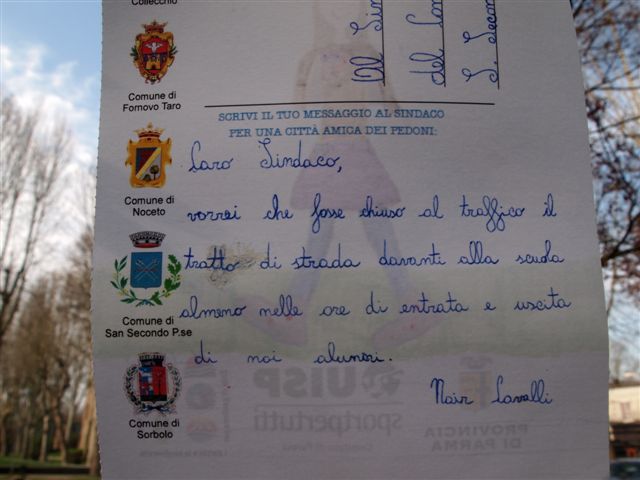 Collecchio
Comune di
Fornovo Taro
Comune di
Noceto
Comune di
San Secondo P.se
Comune di
Sorbolo
Al Sin
del Com
S. Secon
SCRIVI IL TUO MESSAGGIO AL SINDACO
PER UNA CITTÀ AMICA DEI PEDONI:
Caro Sindaco,
vorrei che fosse chiuso al traffico il
tratto di strada davanti alla scuola
almeno nelle ore di entrata e uscita
di noi alunni.
Nair Cavalli
UISP
sportpertutti
PROVINCIA
DI PARMA